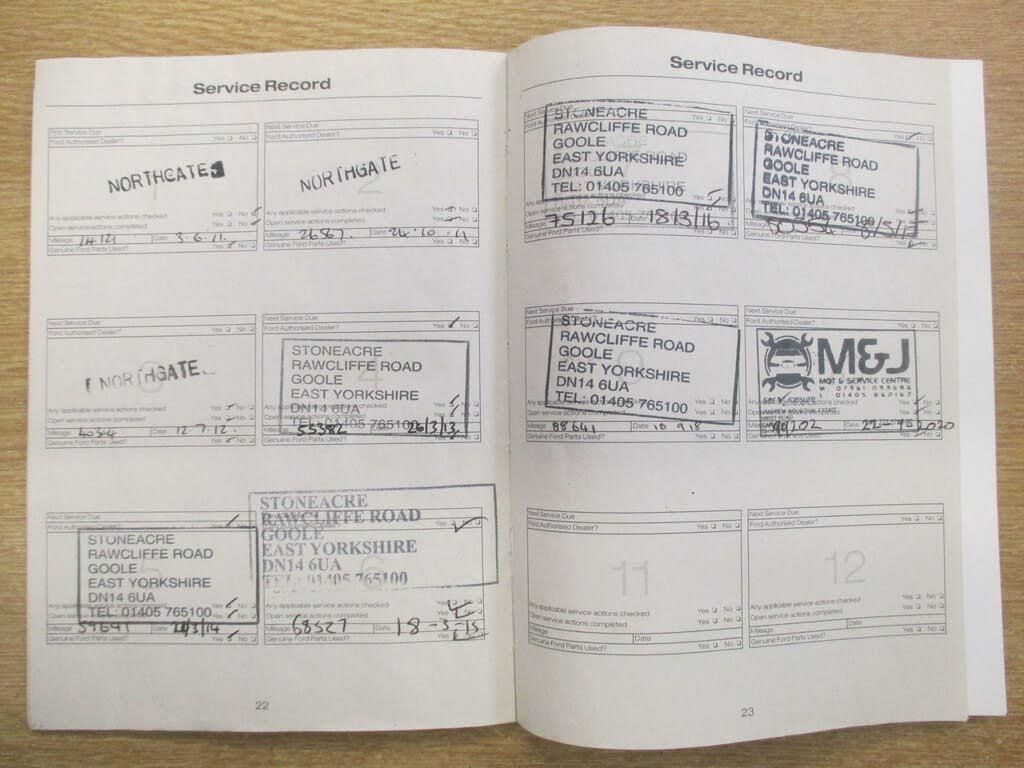 Service Record
First Service Due
Ford Authorised Dealer? Yes No
NORTHGATE
Any applicable service actions checked Yes No
Open service actions completed Yes No
Mileage Date 3-6-11
Genuine Ford Parts Used? Yes No
Next Service Due
Ford Authorised Dealer? Yes No
2
NORTHGATE
Any applicable service actions checked Yes No
Open service actions completed Yes No
Mileage 26567. Date 24.10.11
Genuine Ford Parts Used? Yes No
Next Service Due
Ford Authorised Dealer? Yes No
3
NORTHGATE
Any applicable service actions checked Yes No
Open service actions completed Yes No
Mileage Date 12.7.12.
Genuine Ford Parts Used? Yes No
Next Service Due
Ford Authorised Dealer? Yes No
4
STONEACRE
RAWCLIFFE ROAD
GOOLE
EAST YORKSHIRE
DN14 6UA
TEL: 01405 765100
Any applicable service actions checked Yes No
Open service actions completed Yes No
Mileage 55382 Date 26/3/13
Genuine Ford Parts Used? Yes No
Next Service Due
Ford Authorised Dealer?
STONEACRE
RAWCLIFFE ROAD
GOOLE
EAST YORKSHIRE
DN14 6UA
TEL: 01405 765100
Yes No
Mileage 59641 Date
Genuine Ford Parts Used? Yes No
STONEACRE
RAWCLIFFE ROAD
GOOLE
EAST YORKSHIRE
DN14 6UA
TEL: 01405 765100
6
Any applicable service actions checked Yes No
Open service actions completed Yes No
Mileage 68527 Date 18-3-15
Genuine Ford Parts Used? Yes
22
Service Record
Next Service Due
Ford Authorised Dealer? Yes No
STONEACRE
RAWCLIFFE ROAD
GOOLE
EAST YORKSHIRE
DN14 6UA
TEL: 01405 765100
Any applicable service actions checked
Open service actions completed
Mileage 75126 18/3/16
Genuine Ford Parts Used? Yes No
8
STONEACRE
RAWCLIFFE ROAD
GOOLE
EAST YORKSHIRE
DN14 6UA
TEL: 01405 765100
Genuine Ford Parts Used? Yes No
Next Service Due
9
STONEACRE
RAWCLIFFE ROAD
GOOLE
EAST YORKSHIRE
DN14 6UA
TEL: 01405 765100
Any applicable service actions checked Yes No
Open service actions completed Yes No
Mileage 88641 Date 10 9 18
Genuine Ford Parts Used? Yes No
Next Service Due
Ford Authorised Dealer? Yes No
M&J
MOT & SERVICE CENTRE
Yes No
Yes No
2020
Genuine Ford Parts Used? Yes No
Next Service Due
Ford Authorised Dealer? Yes No
11
Any applicable service actions checked Yes No
Open service actions completed Yes No
Mileage Date
Genuine Ford Parts Used? Yes No
Next Service Due
Ford Authorised Dealer? Yes No
12
Any applicable service actions checked Yes No
Open service actions completed Yes No
Mileage Date
Genuine Ford Parts Used? Yes No
23